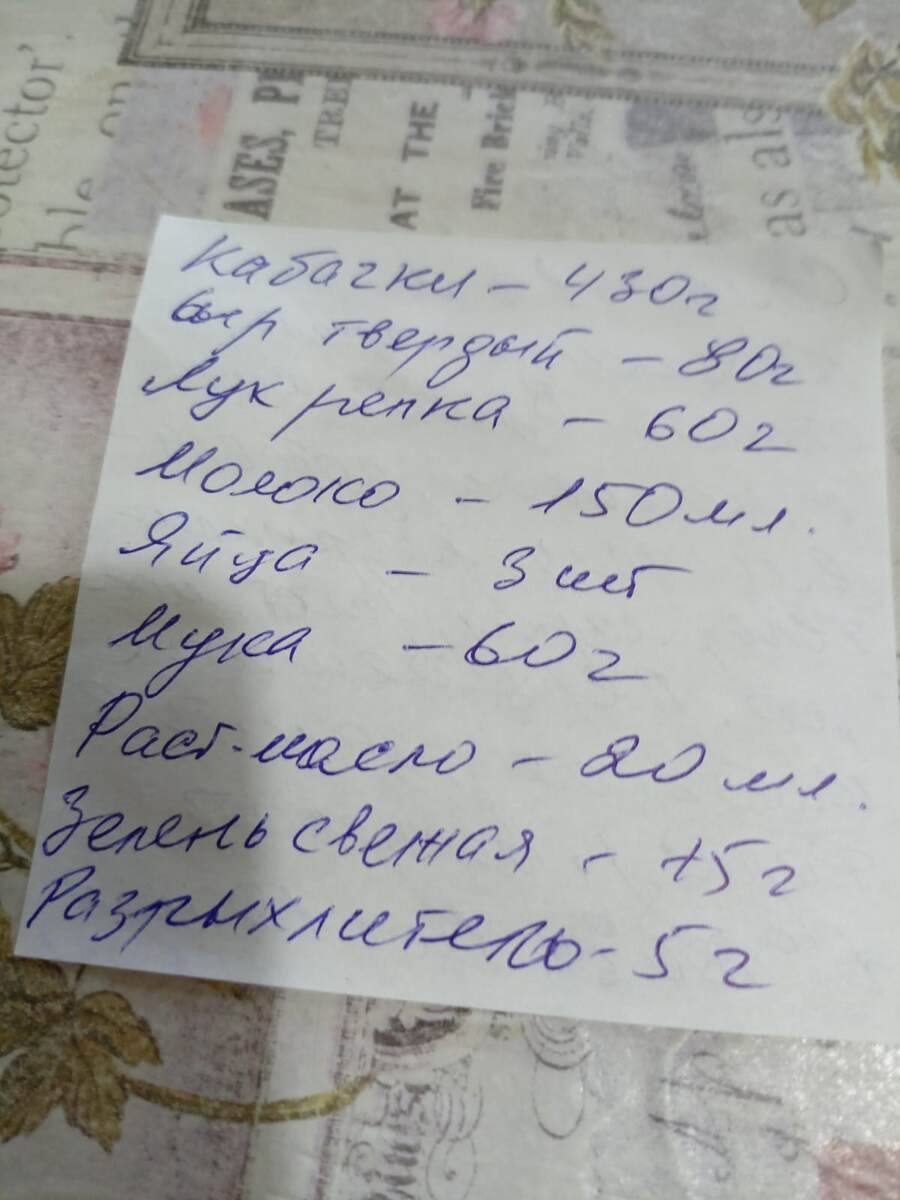 olector'.
ble on
ASES, PE
TREE
AT THE
Fire Brick
as als
Кабачки - 430г
сыр твердый - 80г
Лук репка - 60г
Молоко - 150мл.
Яйца - 3 шт
Мука - 60г
Раст-масло - 20 мл.
Зелень свежая - 15г
Разрыхлитель - 5г